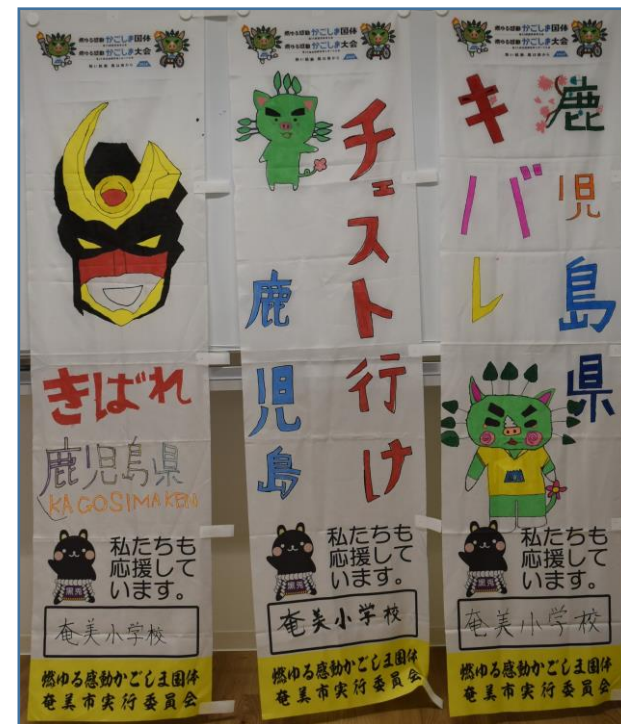 燃ゆる感動かごしま国体
燃ゆる感動かごしま大会
きばれ
鹿児島県
KAGOSIMAKEN
私たちも
応援して
います。
奄美小学校
燃ゆる感動かごしま国体
奄美市実行委員会
燃ゆる感動かごしま国体
燃ゆる感動かごしま大会
チェスト行け
鹿児島
私たちも
応援して
います。
奄美小学校
燃ゆる感動かごしま国体
奄美市実行委員会
燃ゆる感動かごしま国体
燃ゆる感動かごしま大会
鹿児島県
キバレ
私たちも
応援して
います。
奄美小学校
燃ゆる感動かごしま国体
奄美市実行委員会